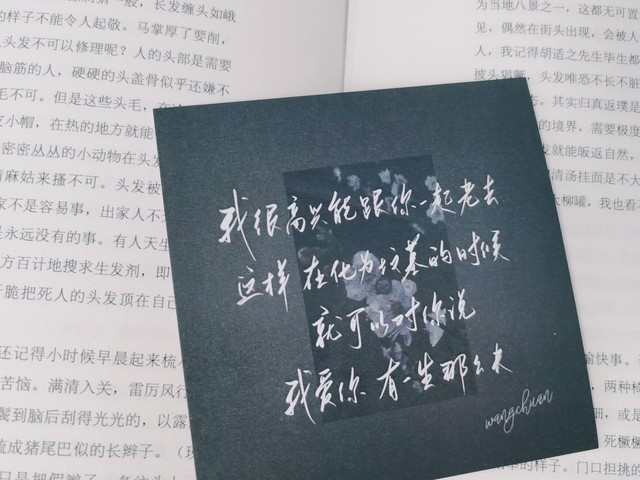 长发缠头如峨
的样子不能令人起敬。马掌厚了要削，
头发不可以修理呢？人的头部是需要
脑筋的人，硬硬的头盖骨似乎还嫌不
毛不可。但是这些头毛，在
皮小帽，在热的地方就能
密密丛丛的小动物在头发
请麻姑来搔不可。头发被
家不是容易事，出家人不
是永远没有的事。有人天生
方百计地搜求生发剂，即
脆把死人的头发顶在自己
还记得小时候早晨起来梳
苦恼。满清入关，雷厉风行
到脑后刮得光光的，以露
梳成猪尾巴似的长辫子。
为当地八景之一，这都无可置
见，偶然在街头出现，会被人
人，我记得胡适之先生毕生都
头发唯恐不长不脏
态。其实归真返璞是
的境界，需要极度
就能皈返自然，
清汤挂面是不大
大柳罐，我也看
愉快事。
两种
细，或是
死橛橛
的样子。门口担挑的
我很高兴能跟你一起老去
这样在化为坟墓的时候
就可以对你说
我爱你 有一生那么长
wangchuan